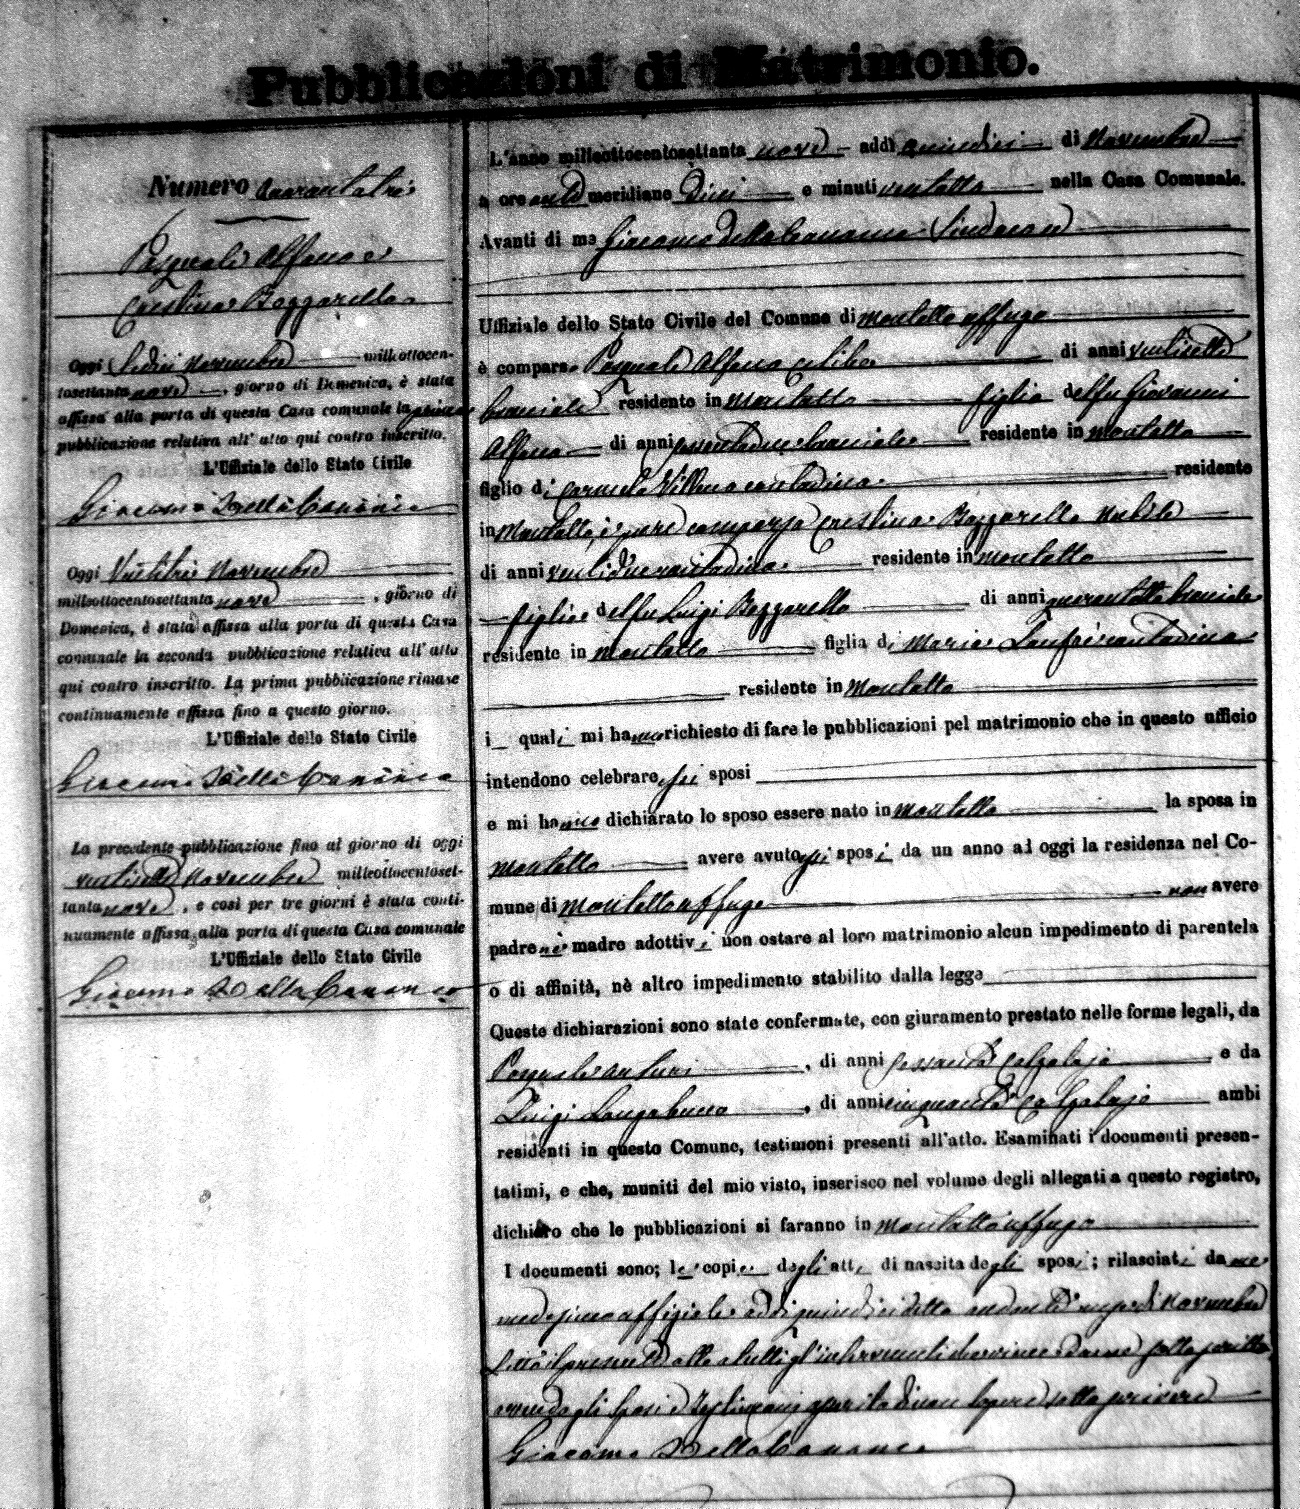 Pubblicazioni di Matrimonio.
Numero quarantatre
Pasquale Alfano e
Cristina Bozzarello
Oggi Sedici Novembre milleottocen-
tosettanta nove, giorno di Domenica, è stata
affissa alla porta di questa Casa comunale la prima
pubblicazione relativa all' atto qui contro inscritto.
L'Uffiziale dello Stato Civile
Giacomo Della Cananea
Oggi Ventitre Novembre
milleottocentosettanta nove, giorno di
Domenica, è stata affissa alla porta di questa Casa
comunale la seconda pubblicazione relativa all' atto
qui contro inscritto. La prima pubblicazione rimase
continuamente affissa fino a questo giorno.
L'Uffiziale dello Stato Civile
Giacomo Della Cananea
La precedente pubblicazione fino al giorno di oggi
ventisette Novembre milleottocentoset-
tanta nove, e così per tre giorni è stata conti-
nuamente affissa alla porta di questa Casa comunale
L'Uffiziale dello Stato Civile
Giacomo Della Cananea
L'anno milleottocentosettanta nove addì quindici di Novembre
a ore anti meridiane Dieci e minuti ventotto nella Casa Comunale.
Avanti di me Giacomo della Cananea Sindaco
Uffiziale dello Stato Civile del Comune di Montalto uffugo
è comparso Pasquale Alfano celibe di anni ventisette
bracciale residente in Montalto figlio del fu Giovanni
Alfano di anni bracciale residente in Montalto
figlio di Carmela contadina residente
in Montalto, è pure comparsa Cristina Bozzarello nubile
di anni ventidue contadina residente in Montalto
figlia del fu Luigi Bozzarello di anni quarantotto bracciale
residente in Montalto figlia di Maria contadina
residente in Montalto
i quali mi hanno richiesto di fare le pubblicazioni pel matrimonio che in questo ufficio
intendono celebrare essi sposi
e mi hanno dichiarato lo sposo essere nato in Montalto la sposa in
Montalto avere avuto gli sposi da un anno ad oggi la residenza nel Co-
mune di Montalto uffugo non avere
padre nè madre adottivi non ostare al loro matrimonio alcun impedimento di parentela
o di affinità, nè altro impedimento stabilito dalla legge
Queste dichiarazioni sono state confermate, con giuramento prestato nelle forme legali, da
Pasquale, di anni sessanta calzolajo e da
Luigi Longobucco, di anni cinquanta calzolajo ambi
residenti in questo Comune, testimoni presenti all'atto. Esaminati i documenti presen-
tatimi, e che, muniti del mio visto, inserisco nel volume degli allegati a questo registro,
dichiaro che le pubblicazioni si faranno in Montalto uffugo
I documenti sono; le copie degli atti di nascita degli sposi; rilasciati da me
medesimo uffiziale addì quindici detto andante mese di Novembre
Letto il presente atto a tutti gl'intervenuti
dagli sposi e Testimoni
Giacomo Della Cananea